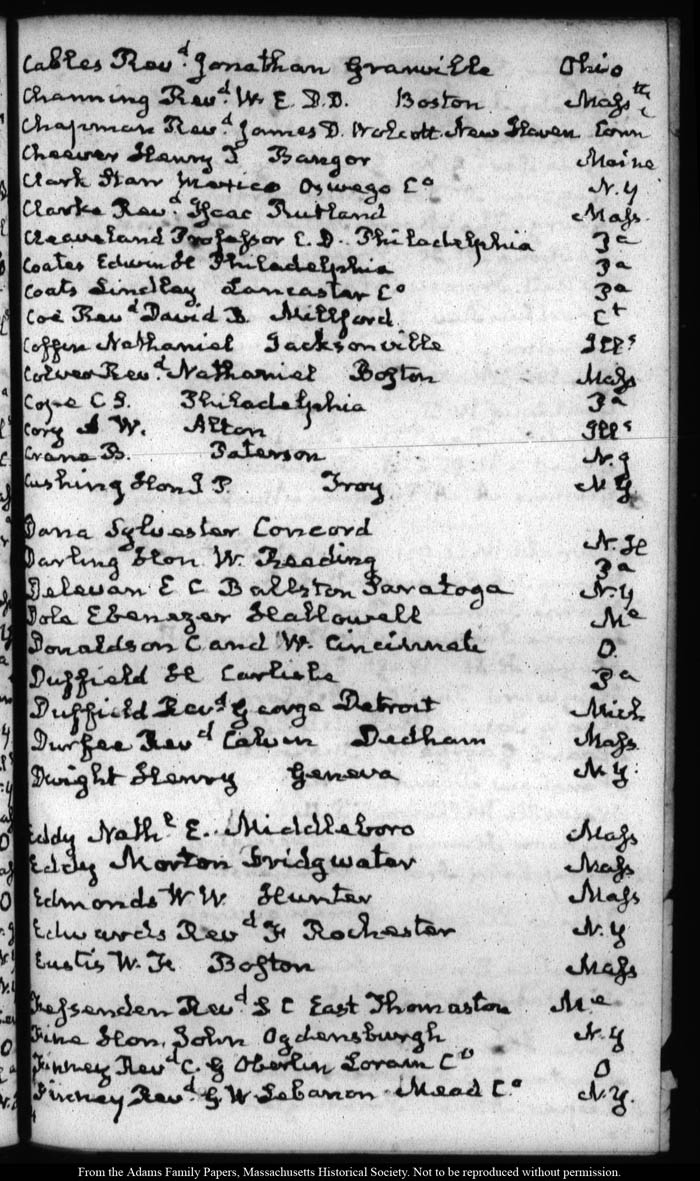 Cables Revd. Jonathan Granville Ohio
Channing Revd. W. E. D.D. Boston Massth
Chapman Revd. James D. Wolcott. New Haven Conn
Cheever Henry T Bangor Maine
Clark Starr Mexico Oswego Co N.Y
Clarke Revd. Isaac Rutland Mass.
Cleaveland Professor E. D. Philadelphia Pa
Coates Edwin H Philadelphia Pa
Coats Lindley Lancaster Co Pa
Coe Revd David B. Millford. Ct
Coffin Nathaniel Jacksonville Ills
Colver Revd. Nathaniel Boston Mass
Cope C S. Philadelphia Pa
Cory A W. Alton Ills
Crane B. Paterson N.J
Cushing Hon T P. Troy N Y
Dana Sylvester Concord N. H
Darling Hon W. Reading Pa
Delevan E C Ballston Saratoga N.Y
Dole Ebenezer Hallowell Me
Donaldson C and W. Cincinnate O.
Duffield H Carlisle Pa
Duffield Revd George Detroit Mich
Durfee Revd Calvin Dedham Mass
Dwight Henry Geneva N.Y.
Eddy Nathl E. Middleboro Mass
Eddy Morton Bridgwater Mass
Edmonds W. W. Hunter Mass
Edwards Revd H Rochester N.Y
Eustis W. H. Boston Mass
Fessenden Revd. S C East Thomaston Me
Fine Hon. John Ogdensburgh N.Y
Finney Revd C. G Oberlin Lorain Co O
Finney Revd. G. W. Lebanon Mead Co N.Y.
From the Adams Family Papers, Massachusetts Historical Society. Not to be reproduced without permission.